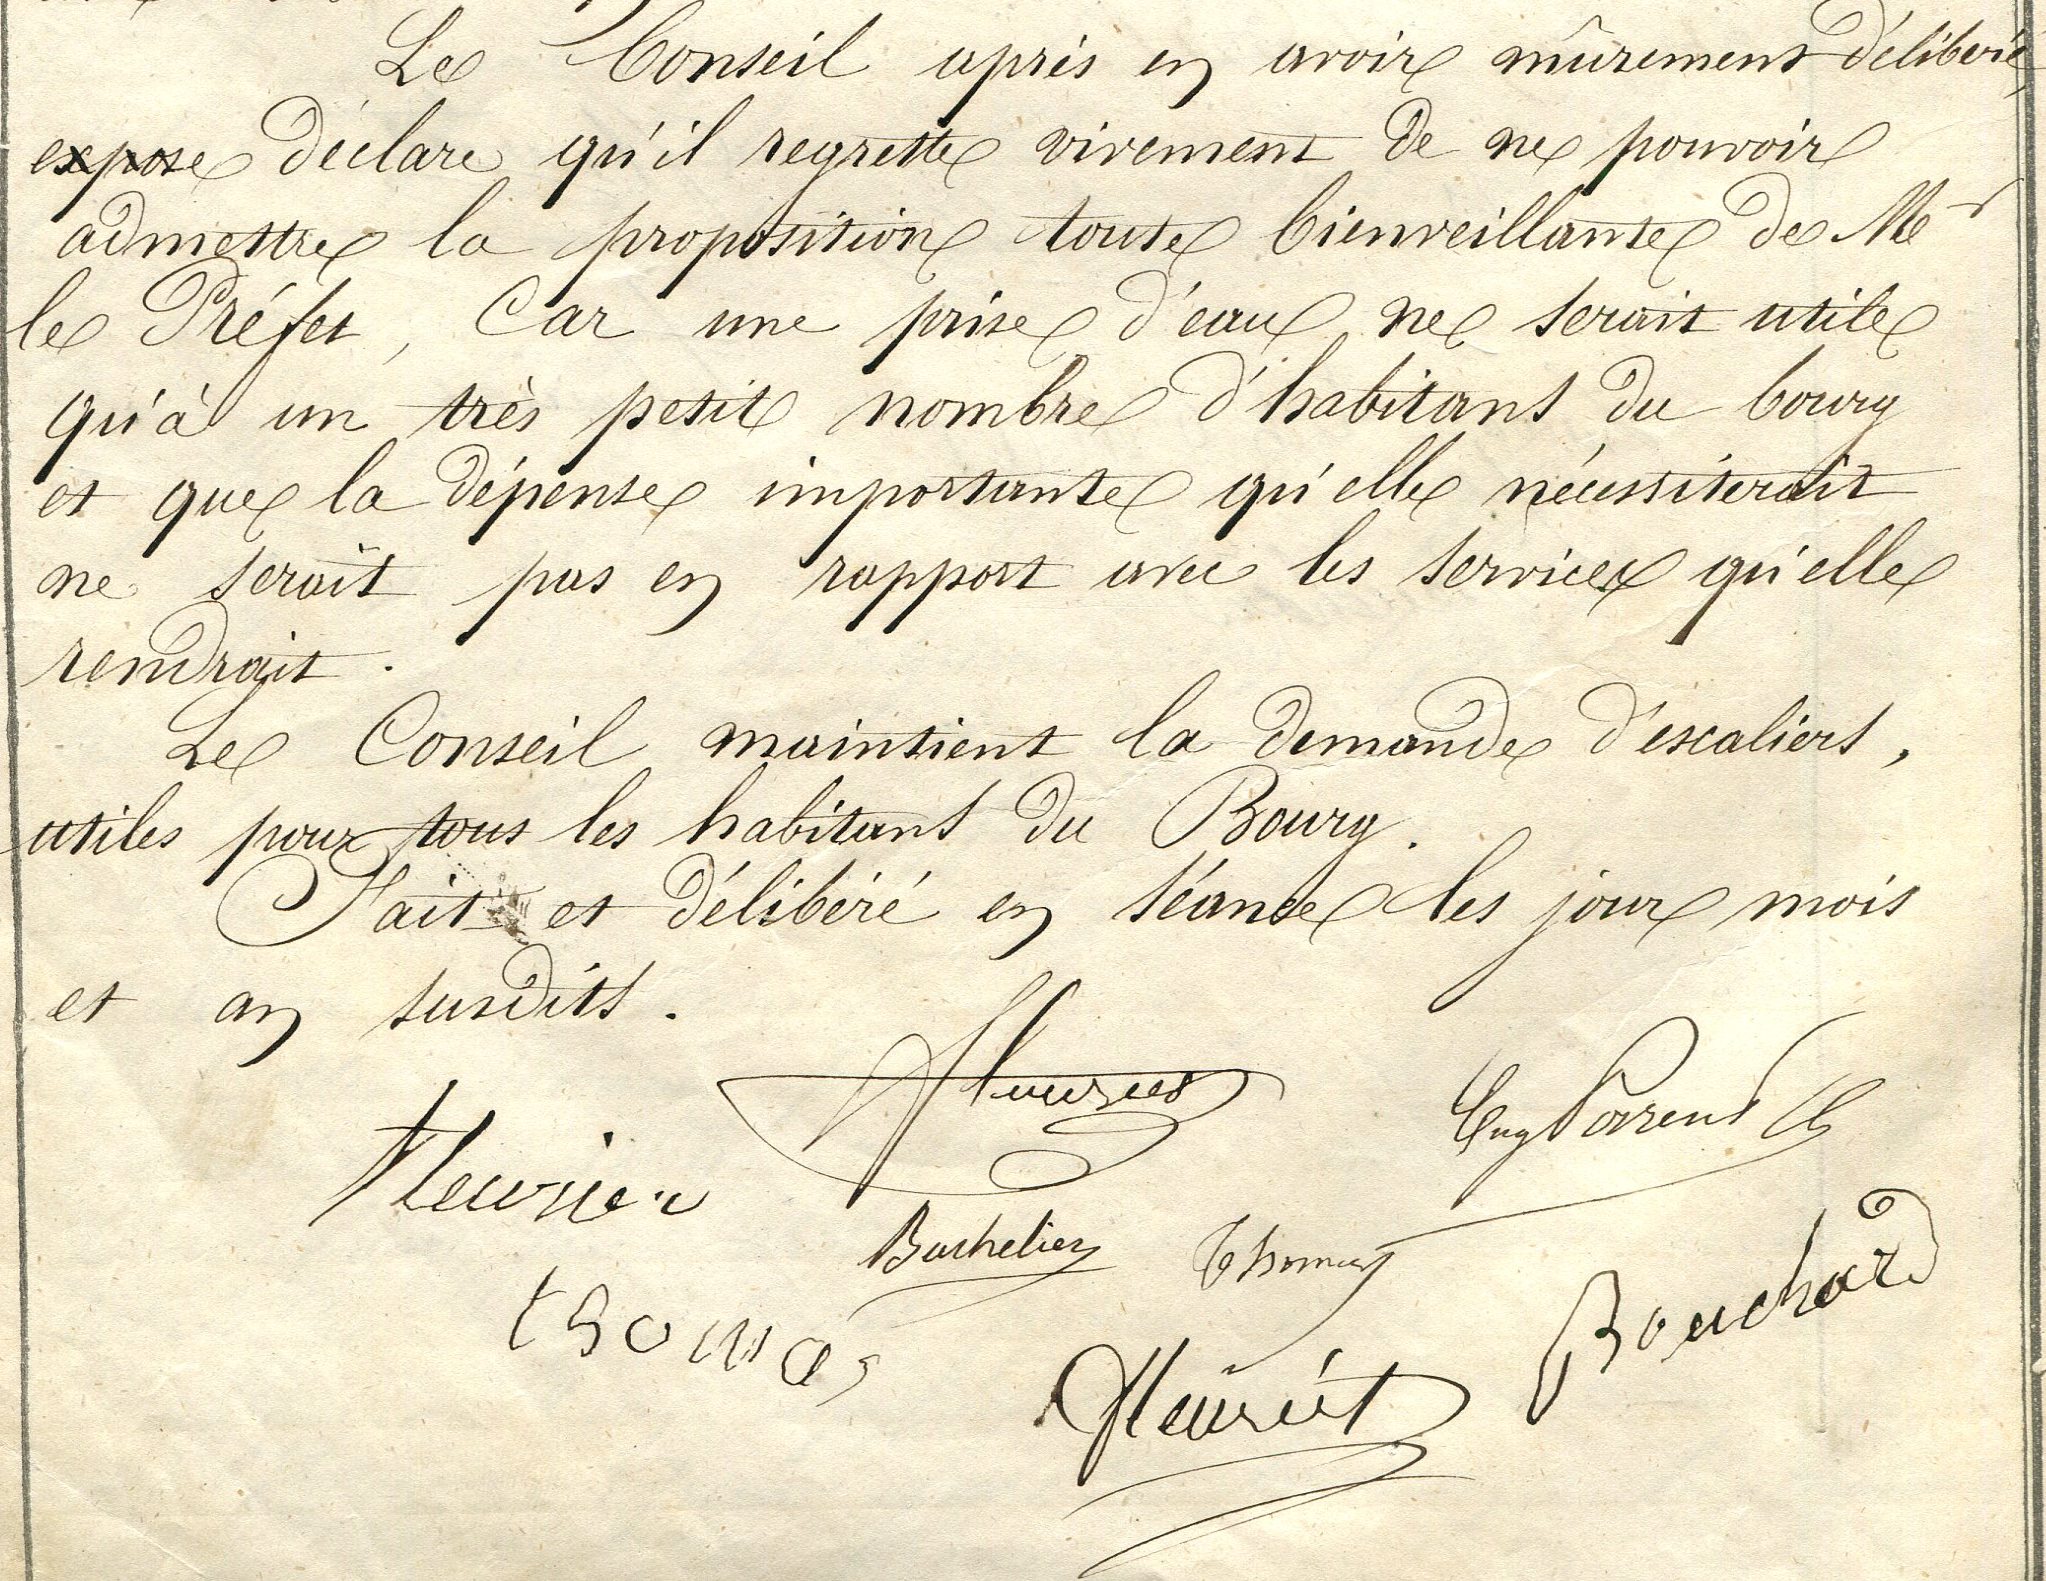 Le Conseil après en avoir mûrement déliberé,
expose déclare qu'il regrette vivement de ne pouvoir
admettre la proposition toute bienveillante de Mr
le Préfet, Car une prise d'eau ne serait utile
qu'à un très petit nombre d'habitants du bourg
et que la dépense importante qu'elle nécessiterait
ne serait pas en rapport avec les services qu'elle
rendrait.
Le Conseil maintient la demande d'escaliers,
utiles pour tous les habitants du Bourg.
Fait et délibéré en séance les jour mois
et an susdits.
Eug Parent
Fleurier
Bachelier Thomas
Bouchard
thomas
Fleuriet